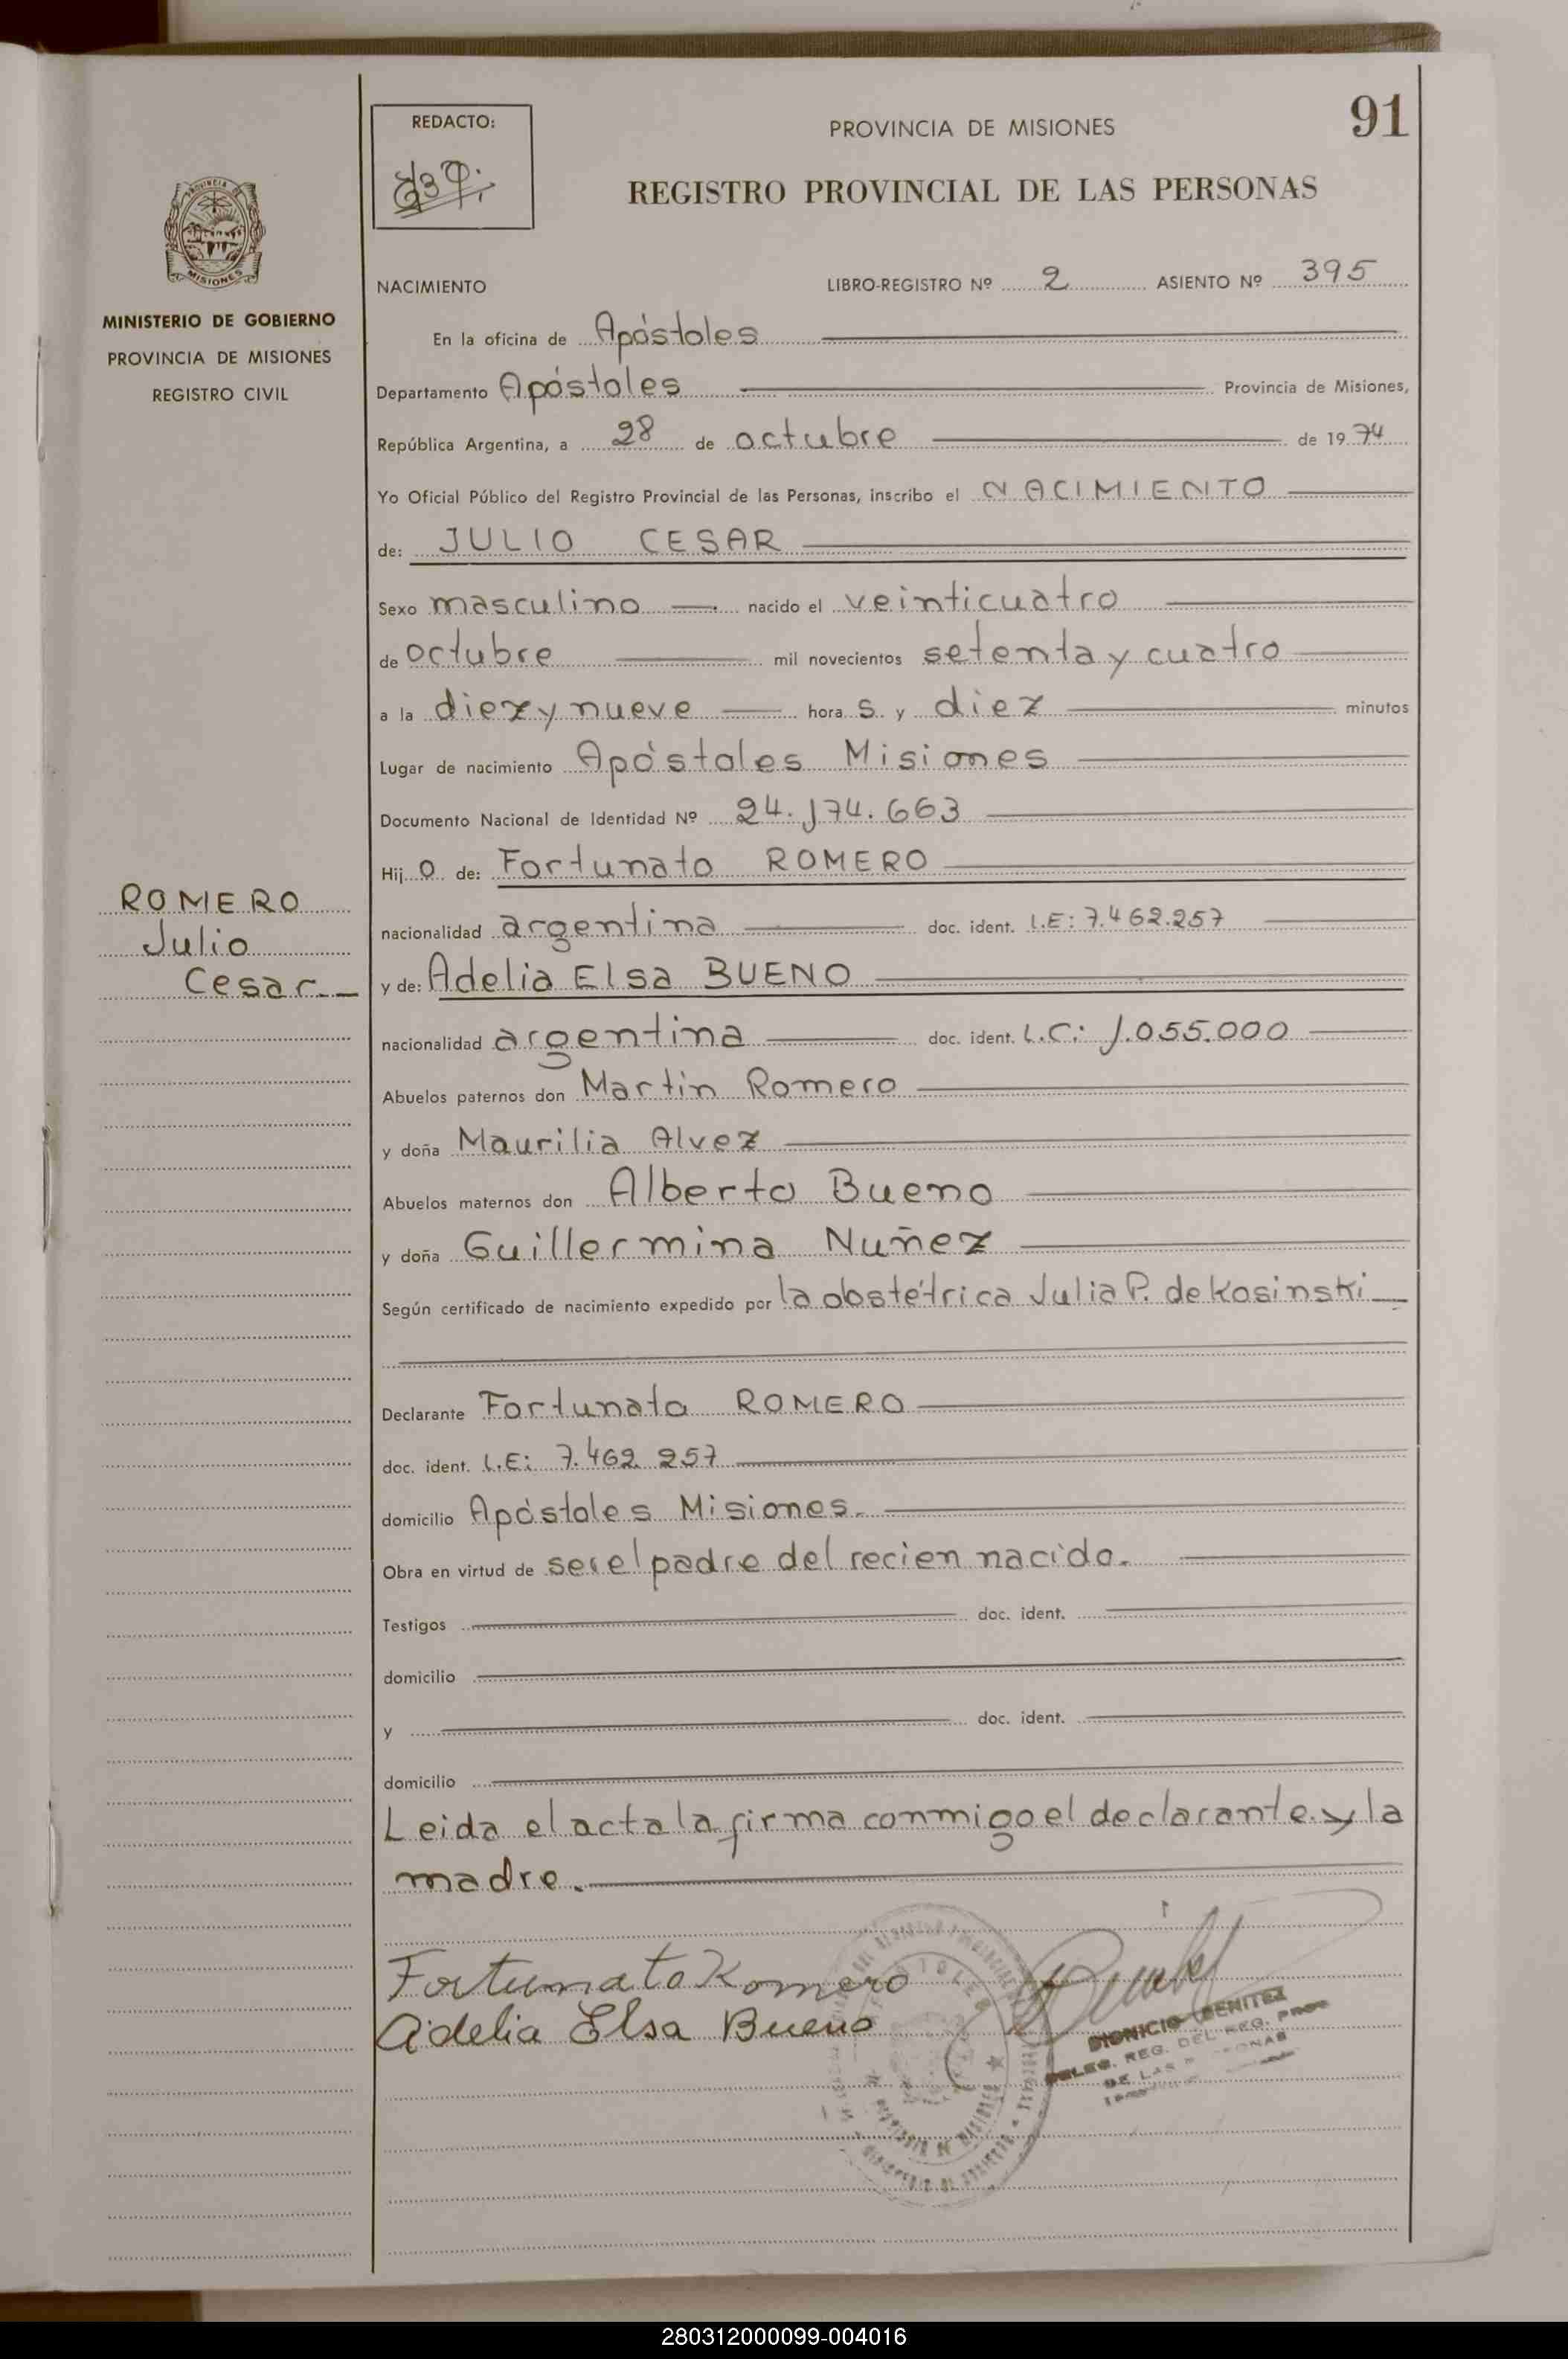 91
REDACTO:
PROVINCIA DE MISIONES
REGISTRO PROVINCIAL DE LAS PERSONAS
MISIONES
MINISTERIO DE GOBIERNO
PROVINCIA DE MISIONES
REGISTRO CIVIL
NACIMIENTO LIBRO-REGISTRO Nº 2 ASIENTO Nº 395
En la oficina de Apóstoles
Departamento Apóstoles Provincia de Misiones,
República Argentina, a 28 de octubre de 1974
Yo Oficial Público del Registro Provincial de las Personas, inscribo el NACIMIENTO
de: JULIO CESAR
Sexo masculino nacido el veinticuatro
de octubre mil novecientos setenta y cuatro
a la diez y nueve hora s y diez minutos
Lugar de nacimiento Apóstoles Misiones
Documento Nacional de Identidad Nº 24.174.663
Hijo de: Fortunato ROMERO
ROMERO
Julio
Cesar.
nacionalidad argentina doc. ident. L.E: 7.462.257
y de: Adelia Elsa BUENO
nacionalidad argentina doc. ident. L.C: 1.055.000
Abuelos paternos don Martin Romero
y doña Maurilia Alvez
Abuelos maternos don Alberto Bueno
y doña Guillermina Nuñez
Según certificado de nacimiento expedido por la obstétrica Julia P. de Kosinski
Declarante Fortunato ROMERO
doc. ident. L.E: 7.462.257
domicilio Apóstoles Misiones.
Obra en virtud de ser el padre del recien nacido.
Testigos doc. ident.
domicilio
y doc. ident.
domicilio
Leida el acta la firma conmigo el declarante y la
madre.
Fortunato Romero
Adelia Elsa Bueno
DIONICIO BENITEZ
DELEG. REG. DEL REG. PROV
DE LAS
280312000099-004016